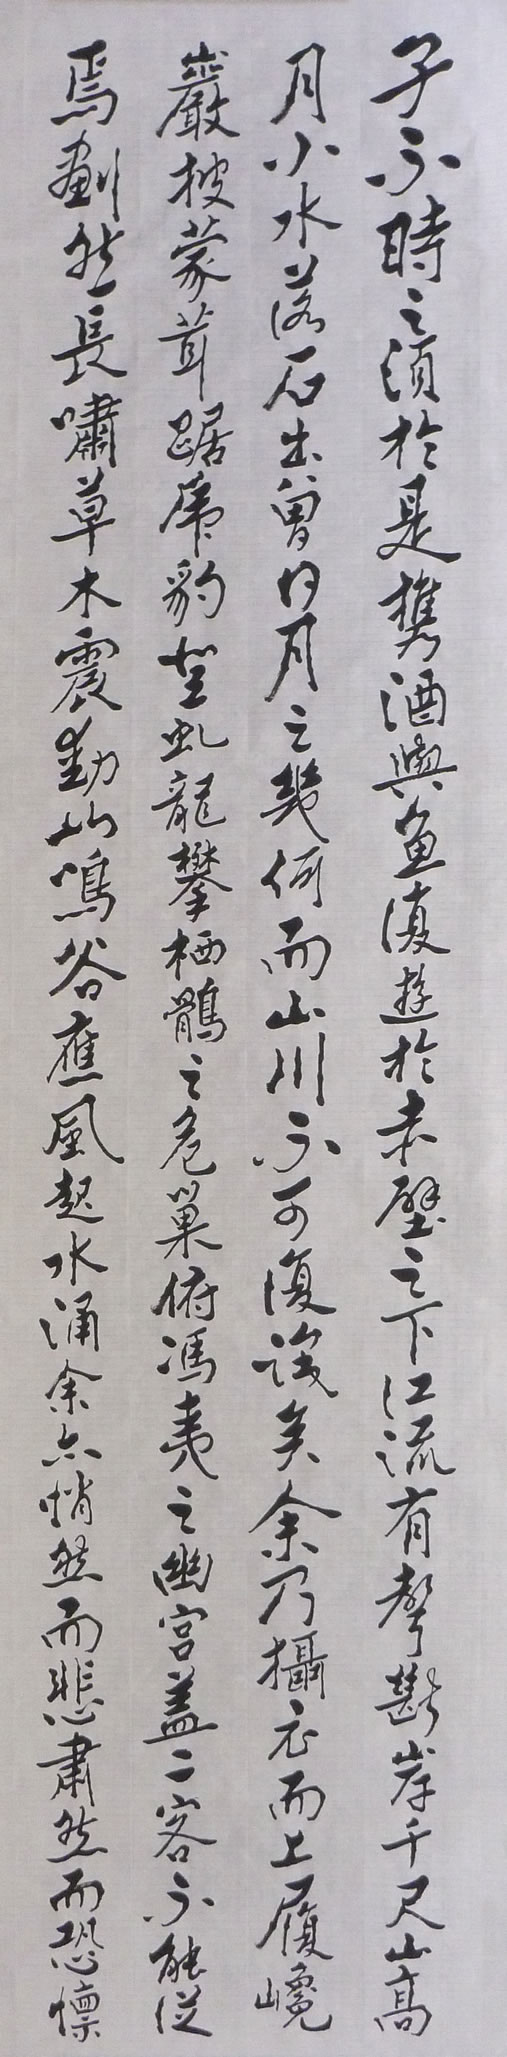 子不時之須於是攜酒與魚復遊於赤壁之下江流有聲斷岸千尺山高
月小水落石出曾日月之幾何而山川不可復識矣余乃攝衣而上履巉
巖披蒙茸踞虎豹登虬龍攀栖鶻之危巢俯馮夷之幽宮蓋二客不能從
焉劃然長嘯草木震動山鳴谷應風起水涌余亦悄然而悲肅然而恐懍